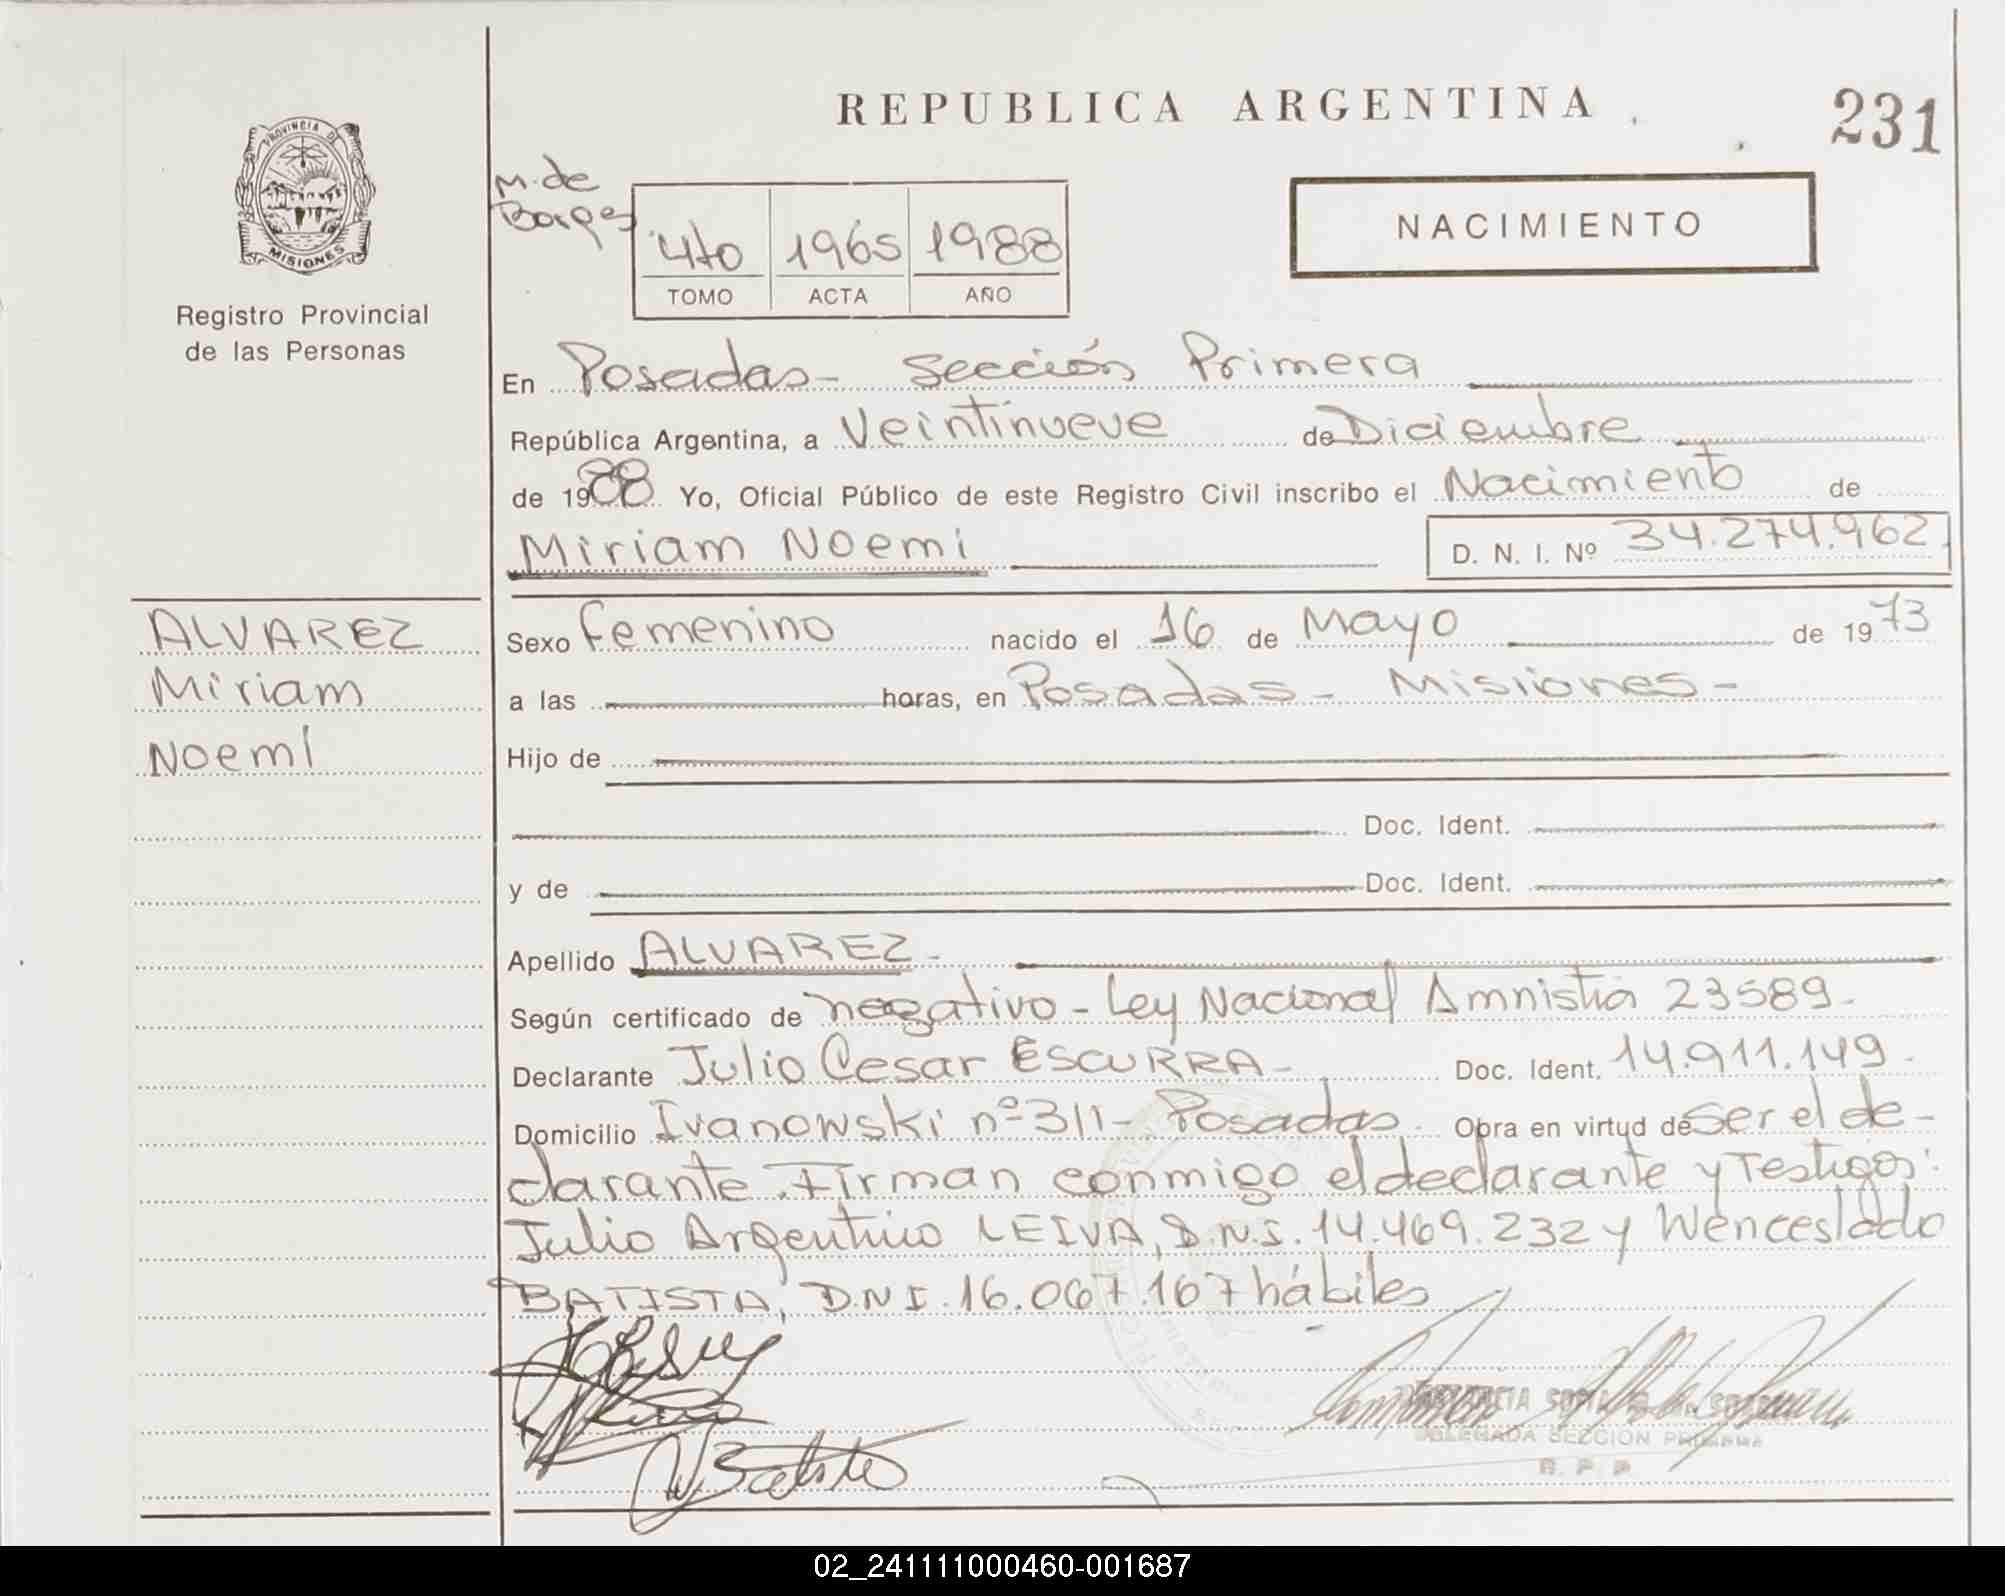 REPUBLICA ARGENTINA
231
PROVINCIA DE
MISIONES
Registro Provincial
de las Personas
M. de
Borges
4to 1965 1988
TOMO ACTA AÑO
NACIMIENTO
En Posadas - Sección Primera
República Argentina, a Veintinueve de Diciembre
de 1988. Yo, Oficial Público de este Registro Civil inscribo el Nacimiento de
Miriam Noemi D. N. I. Nº 34.274.962
ALVAREZ
Miriam
Noemi
Sexo femenino nacido el 16 de Mayo de 1973
a las horas, en Posadas - Misiones -
Hijo de
Doc. Ident.
y de Doc. Ident.
Apellido ALVAREZ -
Según certificado de negativo - Ley Nacional Amnistia 23589 -
Declarante Julio Cesar ESCURRA - Doc. Ident. 14.911.149.
Domicilio Ivanowski nº 311 - Posadas. Obra en virtud de ser el de-
clarante. Firman conmigo el declarante y Testigos:
Julio Argentino LEIVA, D.N.I. 14.469.232 y Wenceslado
BATISTA, D.N.I. 16.067.167 hábiles
W Batista
DELEGADA SECCION PRIMERA
R. P. P.
02_241111000460-001687